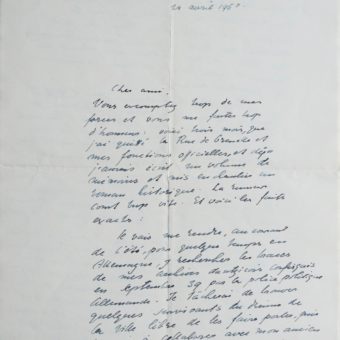 avril 195
Cher ami.
Vous escomptez trop de mes
forces et vous me faites trop
d'honneur: voici trois mois, que
j'ai quitté la Rue de Grenelle et
mes fonctions officielles, et déjà
j'aurais écrit un volume de
mémoires et mis en chantier un
roman historique. La rumeur
court trop vite. Et voici les faits
exacts:
Je vais me rendre, au courant
de l'été, pour quelque temps en
Allemagne, y rechercher les traces
de mes archives confisquées
en septembre 39 par la police politique
Allemande. Je tâcherai de trouver
quelques survivants du drame de
la ville libre de
collaborer avec mon ancien